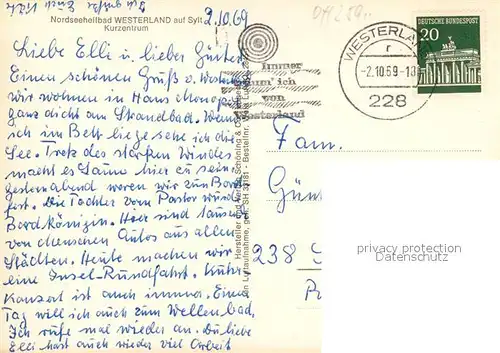 Nordseeheilbad WESTERLAND auf Sylt
Kurzentrum
2.10.69
Liebe Elli u. lieber Günter
Einen schönen Gruß v. Westerland
wir wohnen in Haus Monopol
ganz dicht am Strandbad. Wenn
ich im Bett liege sehe ich die
See. Trotz des starken Windes
macht es Laune hier zu sein.
gesternabend waren wir zum Bord
fest. Die Tochter vom Pastor wurde
Bordkönigin. Hier sind tausende
von Menschen Autos aus allen
Städten. Heute machen wir
eine Insel-Rundfahrt. Kur
Konzert ist auch immer. Einen
Tag will ich auch zum Wellenbad.
Ich rufe mal wieder an. Du liebe
Elli hast auch wieder viel Arbeit
immer
von
Westerland
WESTERLAND
-2.10.69-13
228
DEUTSCHE BUNDESPOST
20
Fam.
Gün
238
privacy protection
Datenschutz